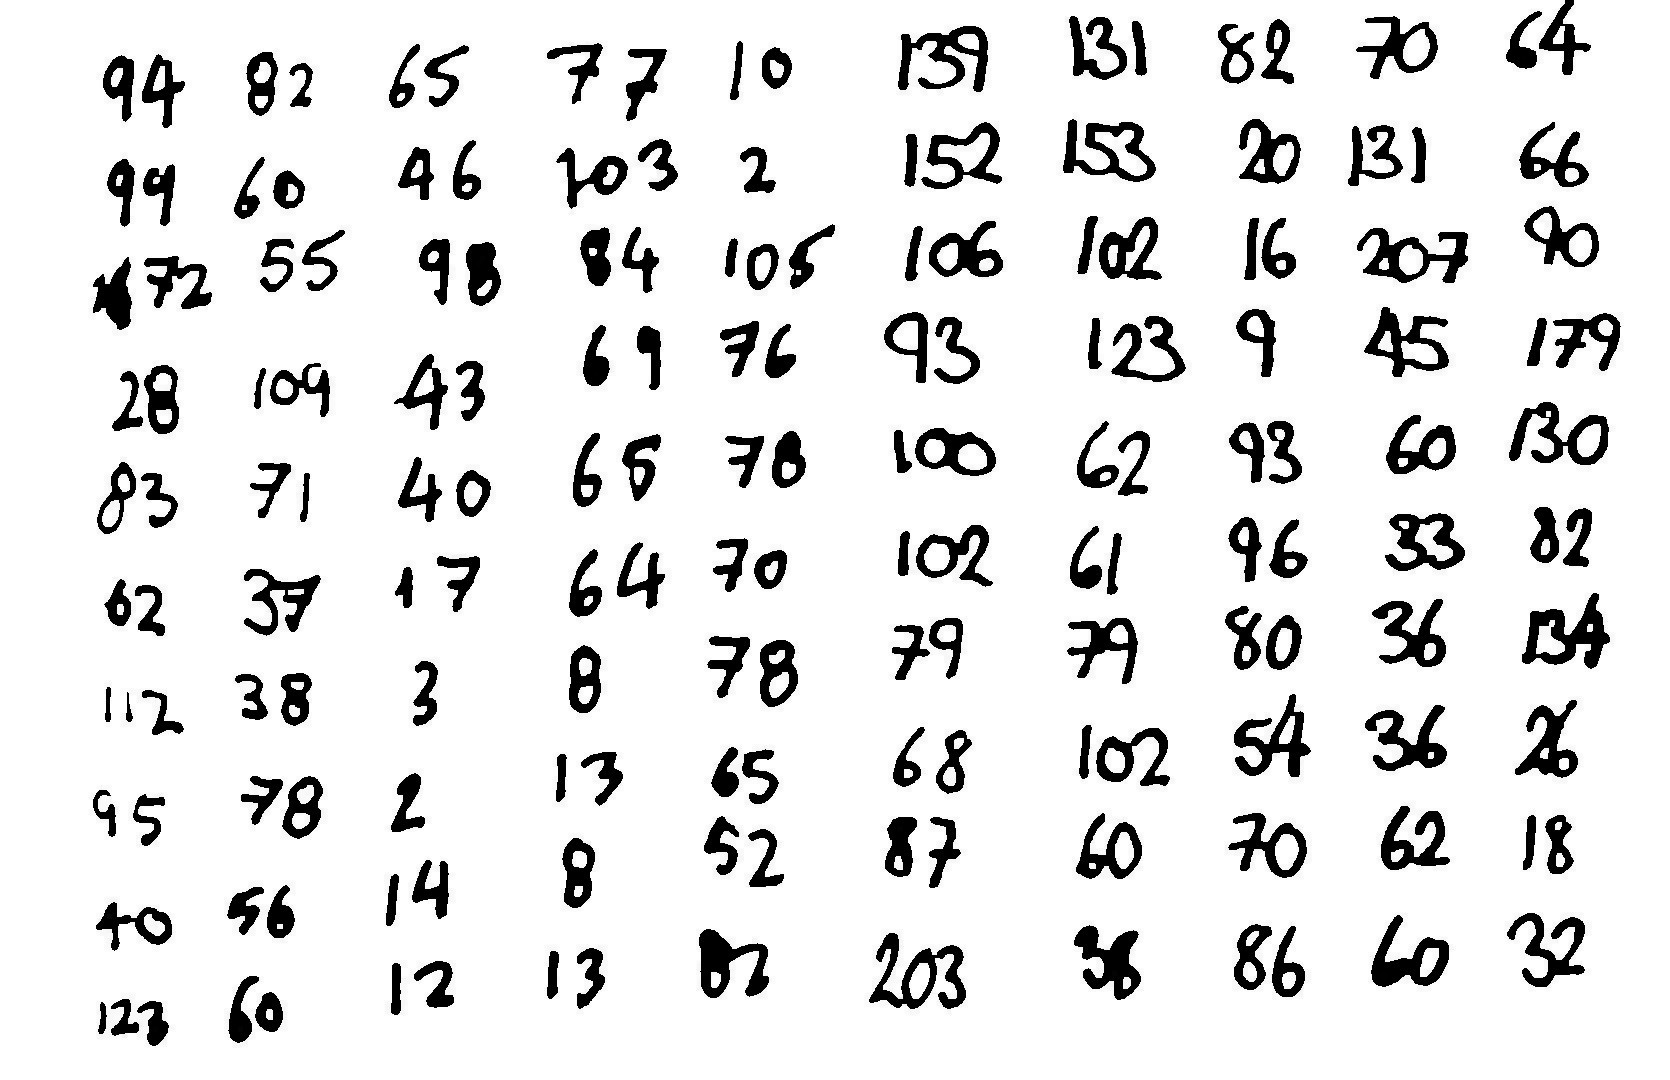 94 82 65 77 10 139 131 82 70 64
99 60 46 103 2 152 153 20 131 66
72 55 98 84 105 106 102 16 207 90
28 109 43 69 76 93 123 9 45 179
83 71 40 65 78 100 62 93 60 130
62 37 17 64 70 102 61 96 33 82
112 38 3 8 78 79 79 80 36 134
95 78 2 13 65 68 102 54 36 26
40 56 14 8 52 87 60 70 62 18
123 60 12 13 82 203 38 86 60 32